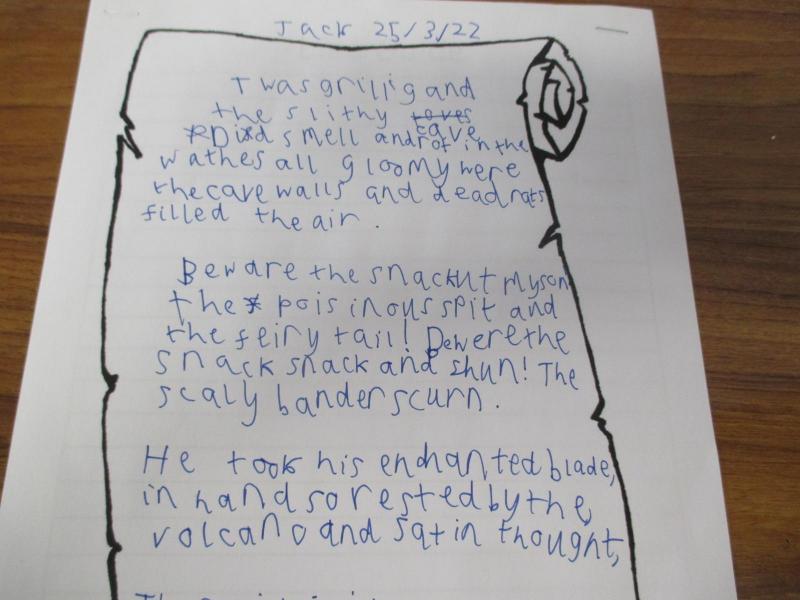 Jack 25/3/22
Twas grillig and
the slithy toves
cave
Did smell and rot in the
wathes all gloomy were
the cave walls and dead rats
filled the air.
Beware the snackut my son
the pois inous spit and
the feiry tail! Bewere the
snack snack and shun! The
scaly banderscurn.
He took his enchanted blade,
in hand so rested by the
volcano and sat in thought,